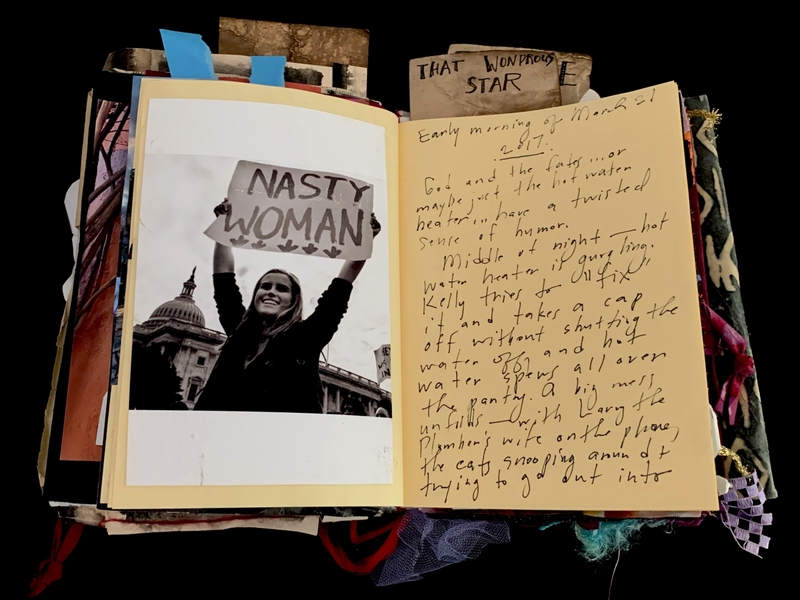 THAT WONDROUS
STAR E
NASTY
WOMAN
Early morning of March 21
2017.
God and the fates...or
maybe just the hot water
heater... have a twisted
sense of humor.
Middle of night — hot
water heater is gurgling.
Kelly tries to "fix"
it and takes a cap
off without shutting the
water off, and hot
water spews all over
the pantry. A big mess
unfolds — with Larry the
Plumber's wife on the phone,
the cats snooping around +
trying to go out into